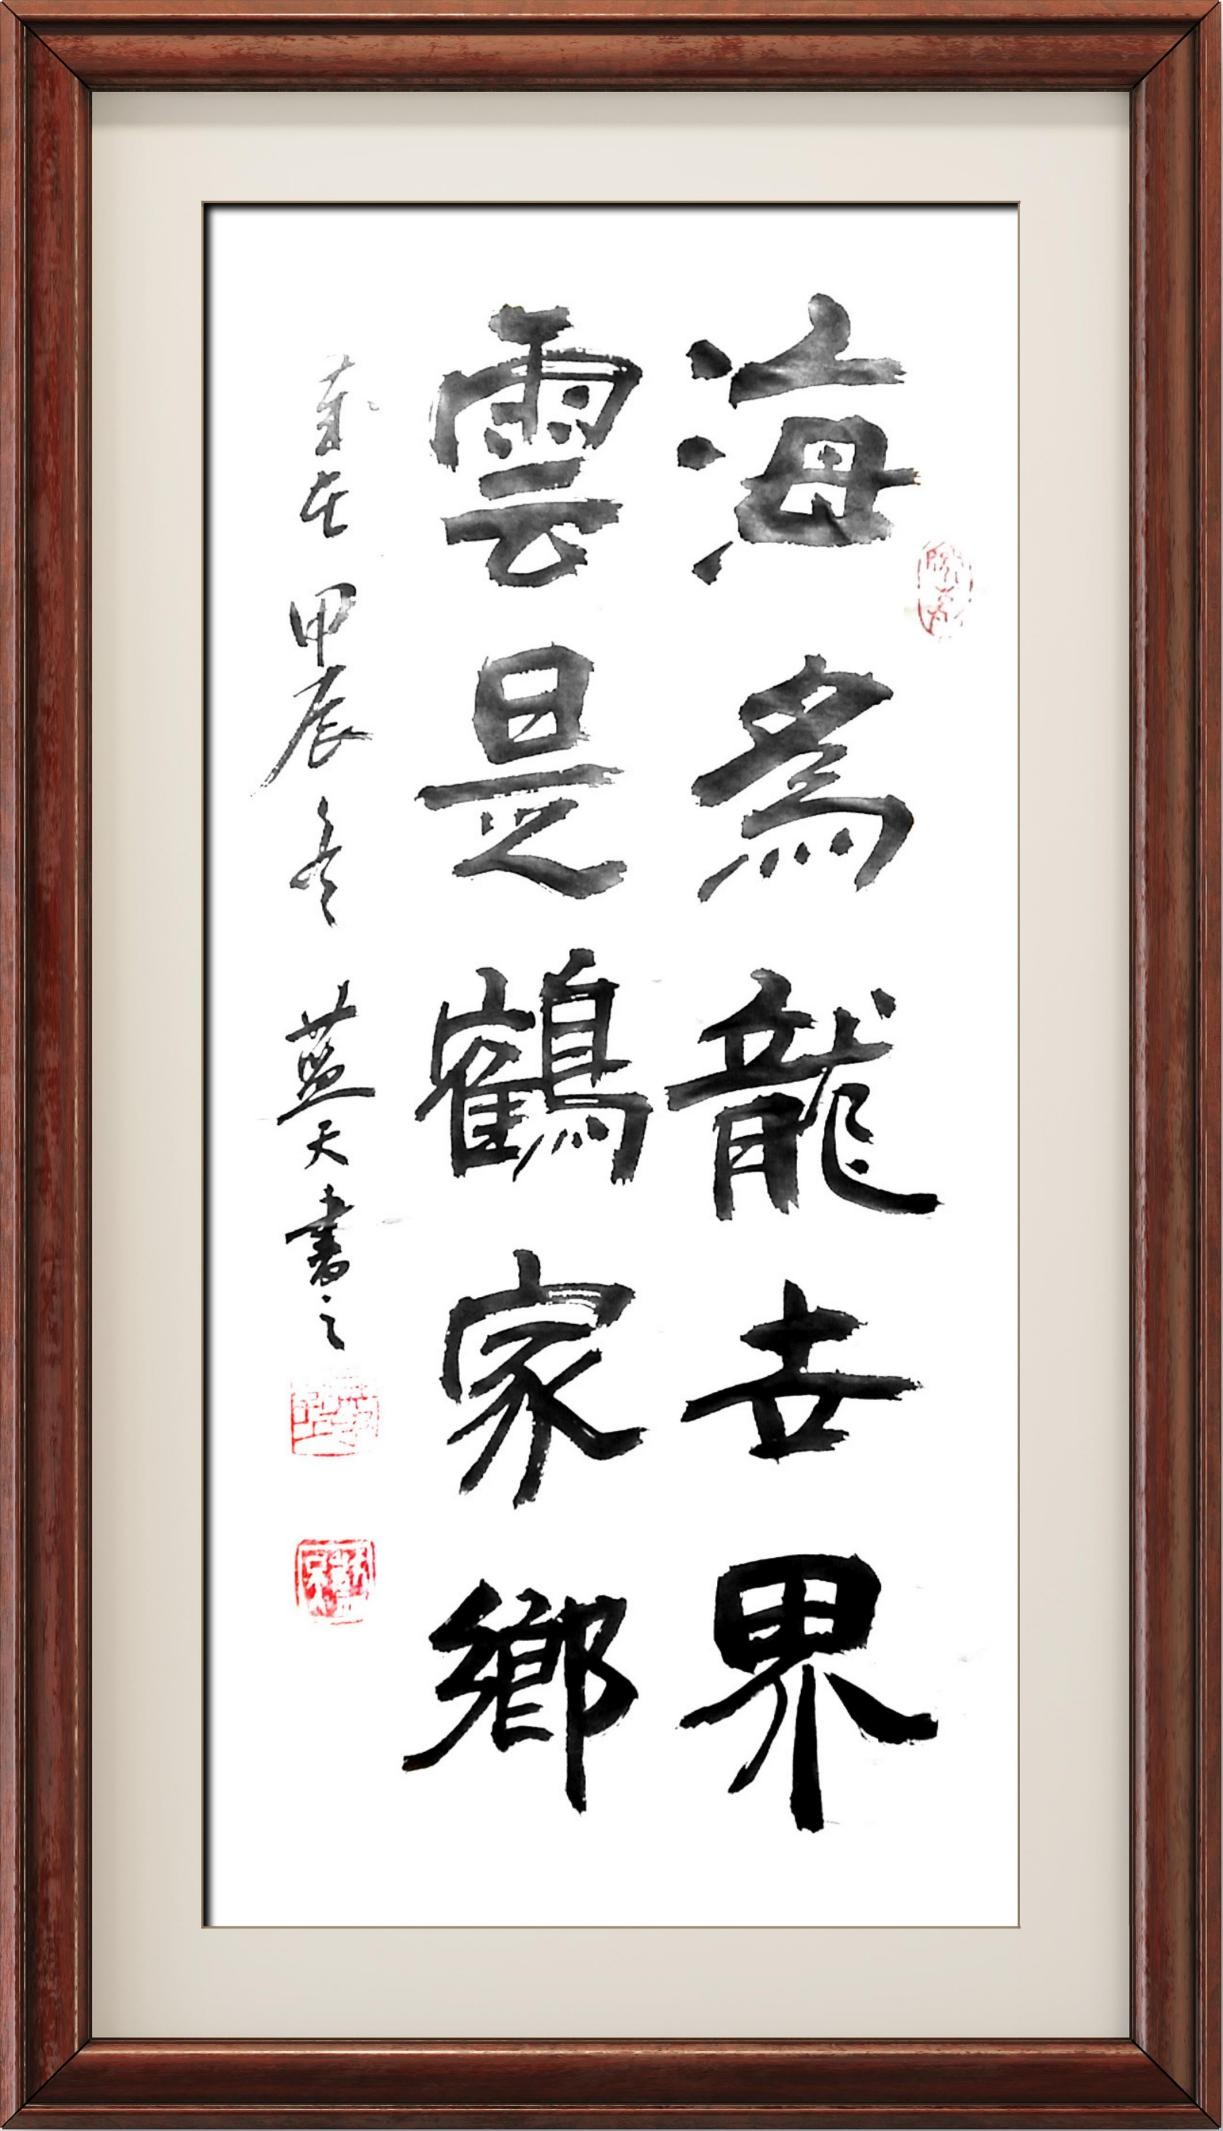 海為龍世界
雲是鶴家鄉
歲在甲辰冬 藍天書之